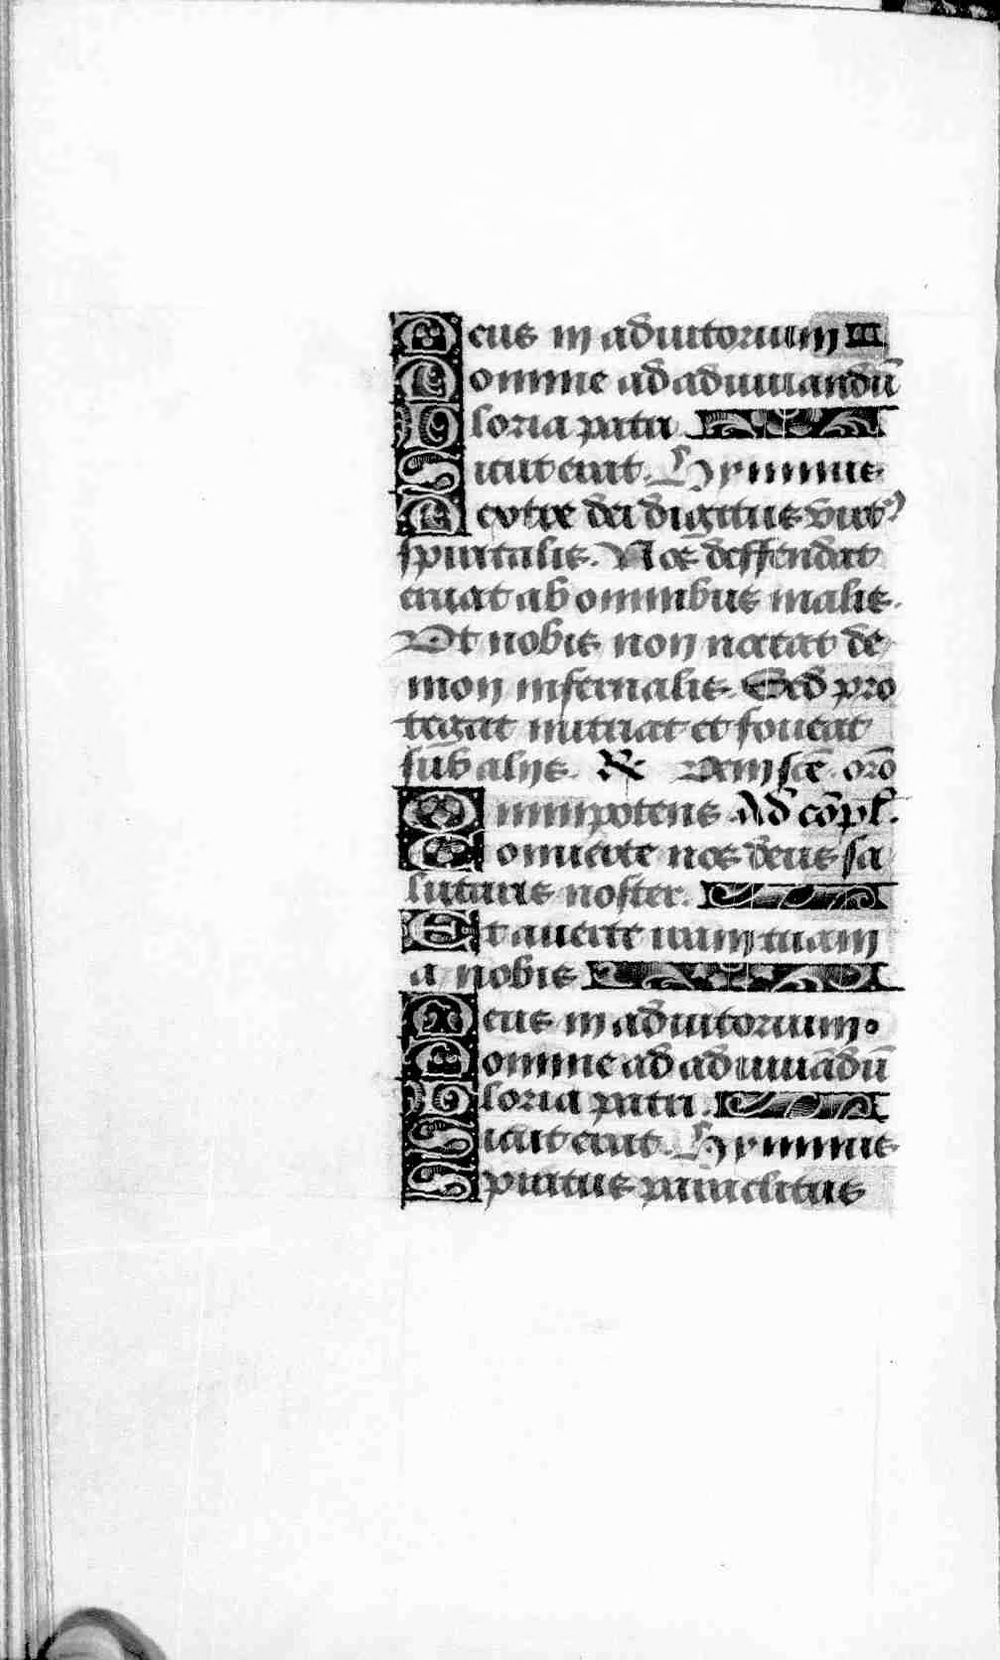 Deus in adiutorium
Domine ad adiuuandũ
Gloria patri
Sicut erat. Hymnus
Dextre dei digitus virt9
spiritalis. Nos deffendat
eruat ab omnibus malis.
Ut nobis non noceat de
mon infernalis. Sed pro
tegat nutriat et foueat
sub alijs. R Veni scẽ. orõ
Omnipotens. Ad cõpl.
Conuerte nos deus sa
lutaris noster.
Et auerte iram tuam
a nobis
Deus in adiutorium.
Domine ad adiuuãdũ
Gloria patri.
Sicut erat. Hymnus
Spiritus paraclitus